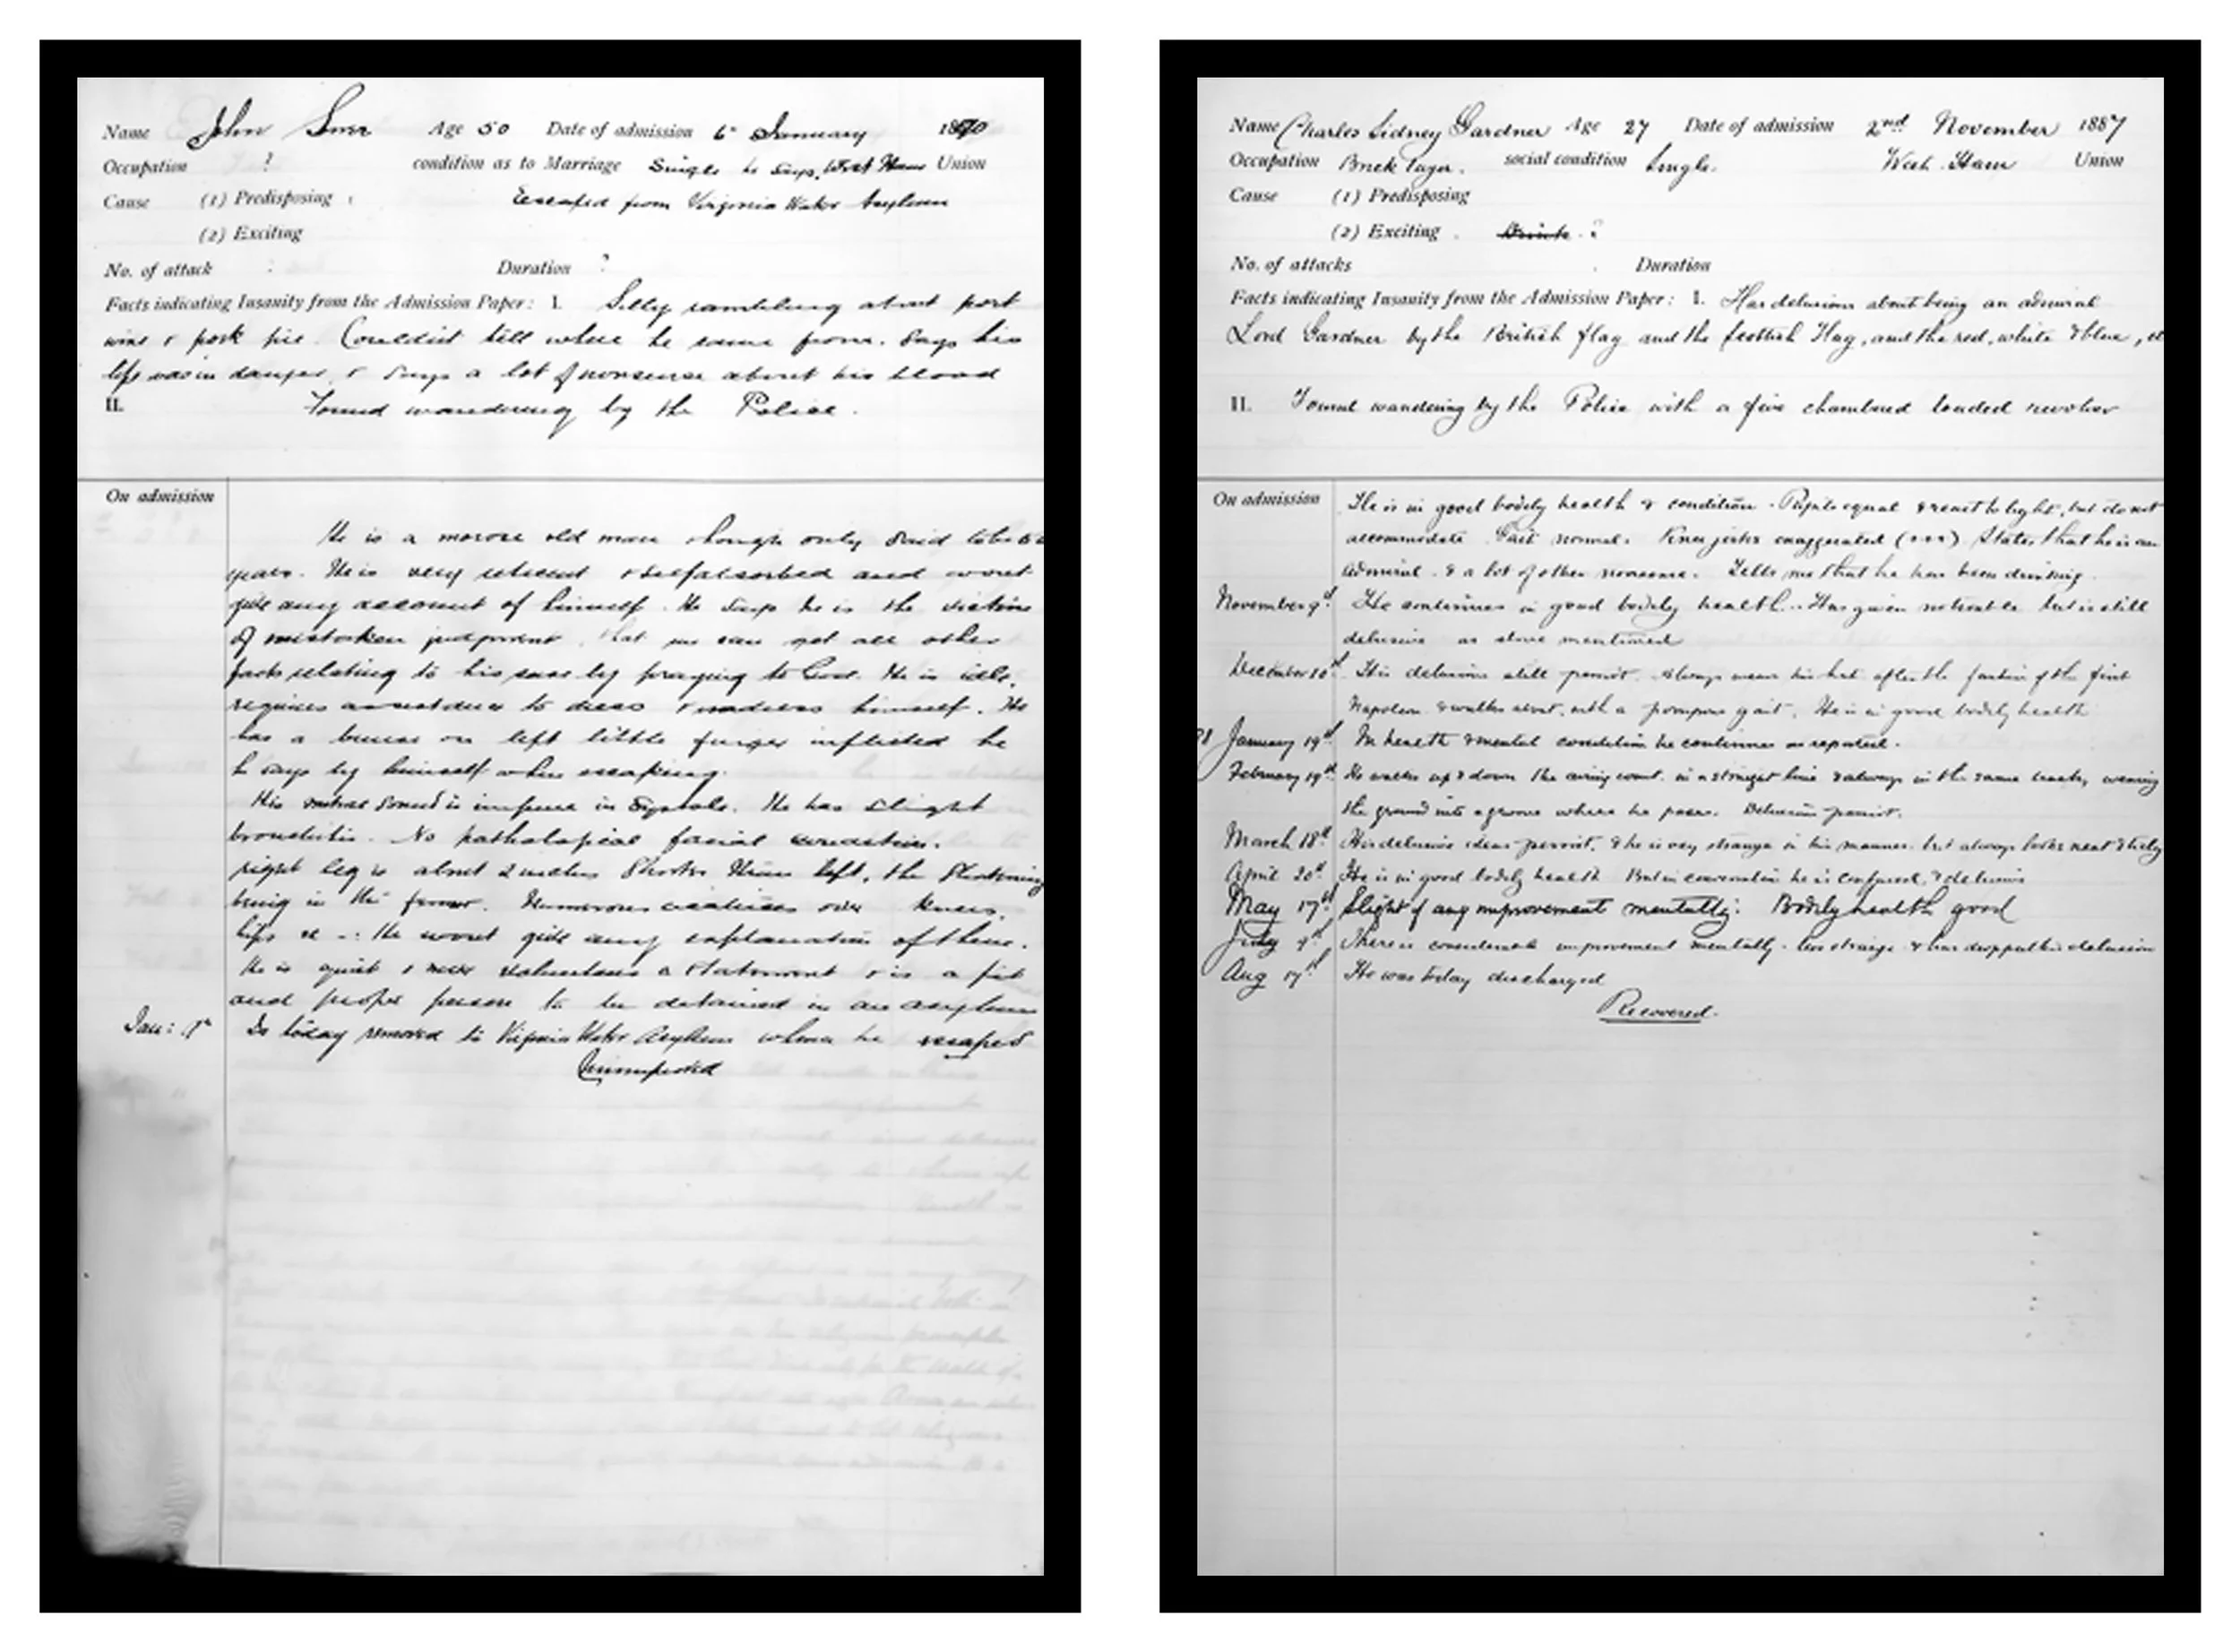 Name John Age 50 Date of admission 6th January 1890
Occupation ? condition as to Marriage Single he says. West Ham Union
Cause (1) Predisposing Escaped from Virginia Water Asylum
(2) Exciting
No. of attack Duration ?
Facts indicating Insanity from the Admission Paper: I. Silly rambling about port
wine & pork pie. Couldn't tell where he came from. Says his
life was in danger, & says a lot of nonsense about his blood
II. Found wandering by the Police.
On admission
He is a morose old man though only said to be 50
years. He is very reticent & selfabsorbed and wont
give any account of himself. He says he is the victim
of mistaken judgment, that we can get all other
facts relating to his case by praying to God. He is idle,
requires assistance to dress & undress himself. He
has a bruise on left little finger inflicted he
he says by himself when escaping.
His mitral sound is impure in Systole. He has slight
bronchitis. No pathological facial
right leg is about 2 inches shorter than left, the shortening
being in the femur. Numerous cicatrices over knees,
hips &c -: He wont give any explanation of them.
He is quiet & never volunteers a statement & is a fit
and proper person to be detained in an asylum
Jan: Is today removed to Virginia Water Asylum whence he escaped
Unimproved
Name Charles Sidney Gardner Age 27 Date of admission 2nd November 1887
Occupation Brick layer. social condition Single. West Ham Union
Cause (1) Predisposing
(2) Exciting Drink ?
No. of attacks Duration
Facts indicating Insanity from the Admission Paper: I. Has delusions about being an admiral
Lord Gardner by the British flag and the Scottish Flag, and the red, white & blue,
II. Found wandering by the Police with a five chambered loaded revolver
On admission He is in good bodily health & condition. Pupils equal & react to light, but do not
accommodate. Gait normal. Knee jerks exaggerated (+++) States that he is an
admiral & a lot of other nonsense. Tells me that he has been drinking.
November 9th He continues in good bodily health. Has given no trouble but is still
delusive as above mentioned
December 10th His delusions still persist. Always wears his hat after the fashion of the first
Napoleon & walks about with a pompous gait. He is in good bodily health
January 19th In health & mental condition he continues as reported.
February 19th He walks up & down the airing court in a straight line & always in the same track, wearing
the ground into a groove where he paces. Delusions persist.
March 18th His delusive ideas persist, & he is very strange in his manner but always looks neat & tidy
April 20th He is in good bodily health But in conversation he is confused, & delusive
May 17th Slight if any improvement mentally. Bodily health good
July 9th There is considerable improvement mentally - less strange & has dropped his delusion
Aug 17th He was today discharged
Recovered.